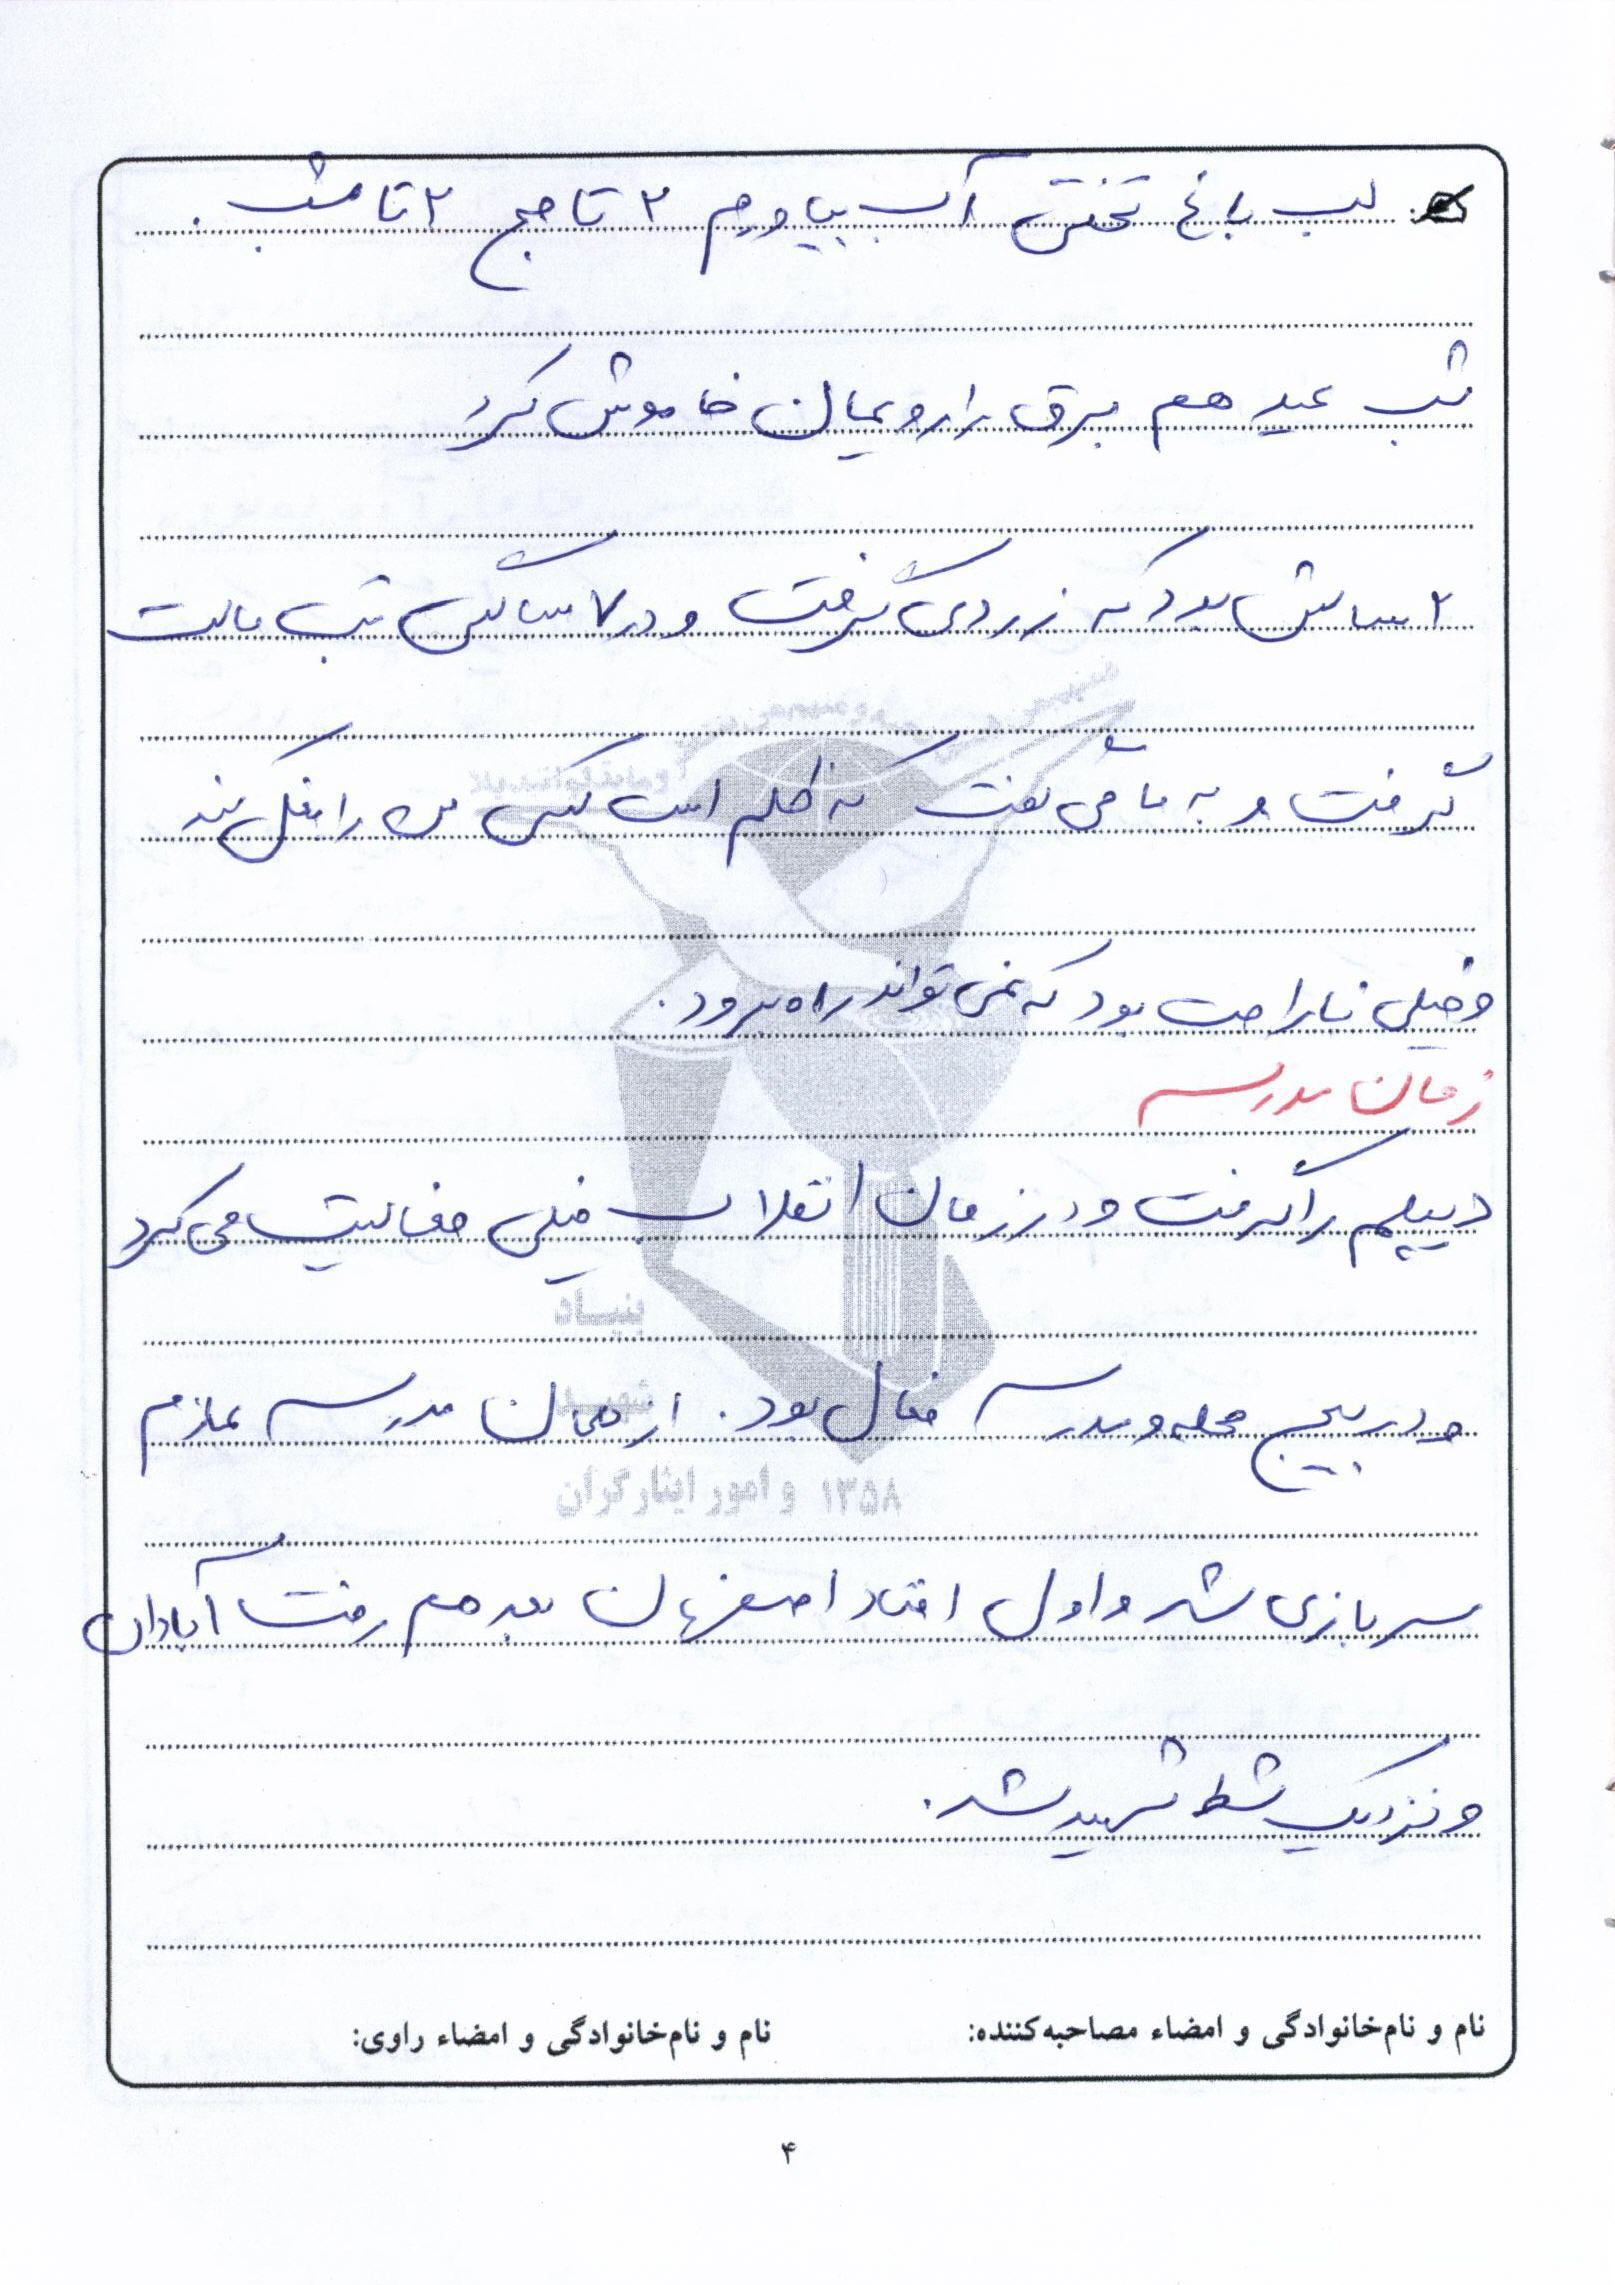 لب باغ تختی آب بیاورم ۲ تا صبح ۲ تا شب.
شب عید هم برق را رویمان خاموش کرد
۲ سالش بود که زردی گرفت و در ۷ سالگی تب مالت
گرفت و به ما می گفت که ظلم است کسی من را بغل کند
و خیلی ناراحت بود که نمی تواند راه برود.
زمان مدرسه
دیپلم را گرفت و در زمان انقلاب خیلی فعالیت می کرد
و در بسیج محله و مدرسه فعال بود. از همان مدرسه عازم
سربازی شد و اول افتاد اصفهان بعد هم رفت آبادان
و نزدیک شط شهید شد.
بنیاد
شهید
۱۳۵۸ و امور ایثارگران
نام و نام‌خانوادگی و امضاء مصاحبه‌کننده: نام و نام‌خانوادگی و امضاء راوی:
۴